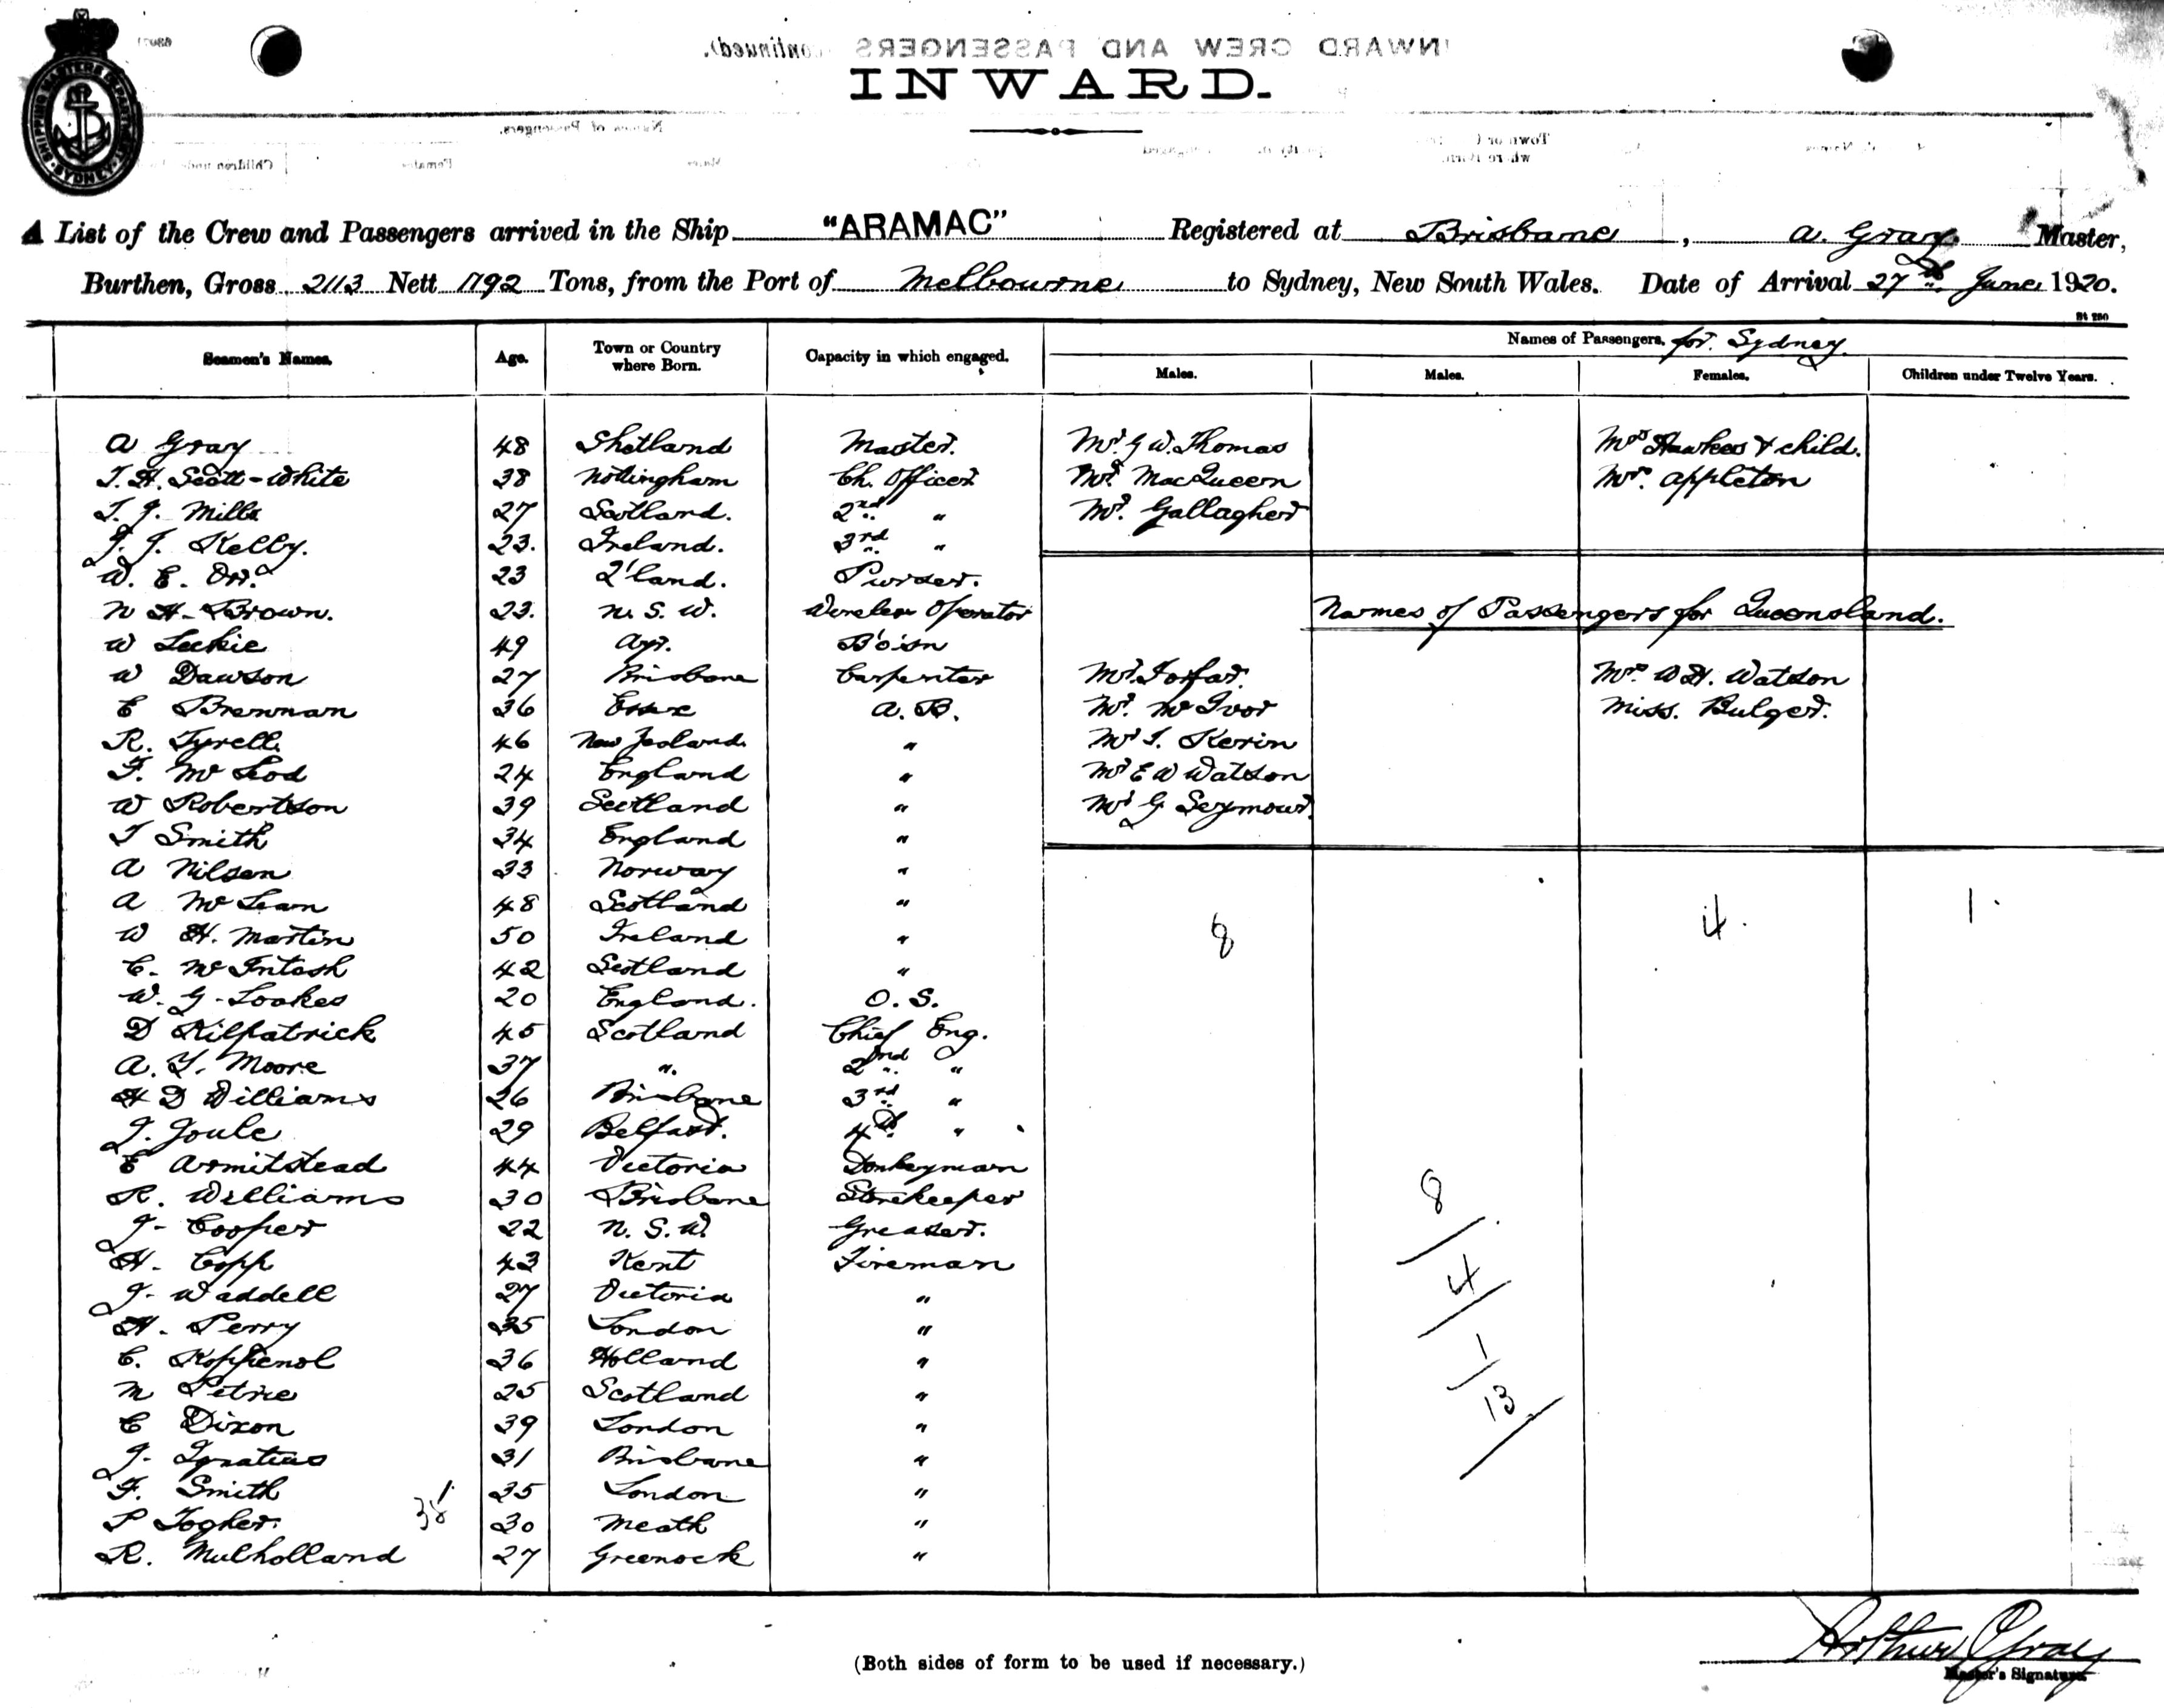 INWARD.
A List of the Crew and Passengers arrived in the Ship "ARAMAC" Registered at Brisbane, A. Gray Master,
Burthen, Gross 2113 Nett 1792 Tons, from the Port of Melbourne to Sydney, New South Wales. Date of Arrival 27th June 1920.
Names of Passengers, for Sydney
Seamen's Names. Age. Town or Country where Born. Capacity in which engaged. Males. Males. Females. Children under Twelve Years.
A Gray 48 Shetland Master. Mr. G W. Thomas Mrs Hawkes & child.
T. H. Scott-White 38 Nottingham Ch. Officer Mr. MacQueen Mrs. Appleton
T. J. Mills 27 Scotland. 2nd " Mr. Gallagher
J. J. Kelly. 23. Ireland. 3rd "
W. E. Orr. 23 Q'land. Purser.
N H. Brown. 23. N. S. W. Wireless Operator Names of Passengers for Queensland.
W Leckie 49 Ayr. Bo'sn
W Dawson 27 Brisbane Carpenter Mr. Forfar. Mrs W H. Watson
E Brennan 36 Essex A. B. Mr. McIvor Miss. Bulger.
R. Tyrell 46 New Zealand " Mr T. Kerin
F. McLeod 24 England " Mr E W Watson
W Robertson 39 Scotland " Mr G Seymour.
T Smith 34 England "
A Nilsen 33 Norway "
A McLean 48 Scotland " 1.
W H. Martin 50 Ireland " 8 4.
C. McIntosh 42 Scotland "
W. G. Lookes 20 England. O. S.
D Kilpatrick 45 Scotland Chief Eng.
A. Y. Moore 37 " 2nd "
H D Williams 26 Brisbane 3rd "
J. Joule 29 Belfast. 4th "
E Armitstead 44 Victoria Donkeyman
R. Williams 30 Brisbane Storekeeper 8
J. Cooper 22 N. S. W. Greaser.
H. Copp 43 Kent Fireman 4
J. Waddell 27 Victoria "
H. Perry 35 London " 1
C. Koppenol 36 Holland "
M Petrie 25 Scotland " 13
C Dixon 39 London "
J. Ignatius 31 Brisbane "
F. Smith 35 London "
P Togher. 30 Meath "
R. Mulholland 27 Greenock "
Arthur Gray
(Both sides of form to be used if necessary.) Master's Signature.